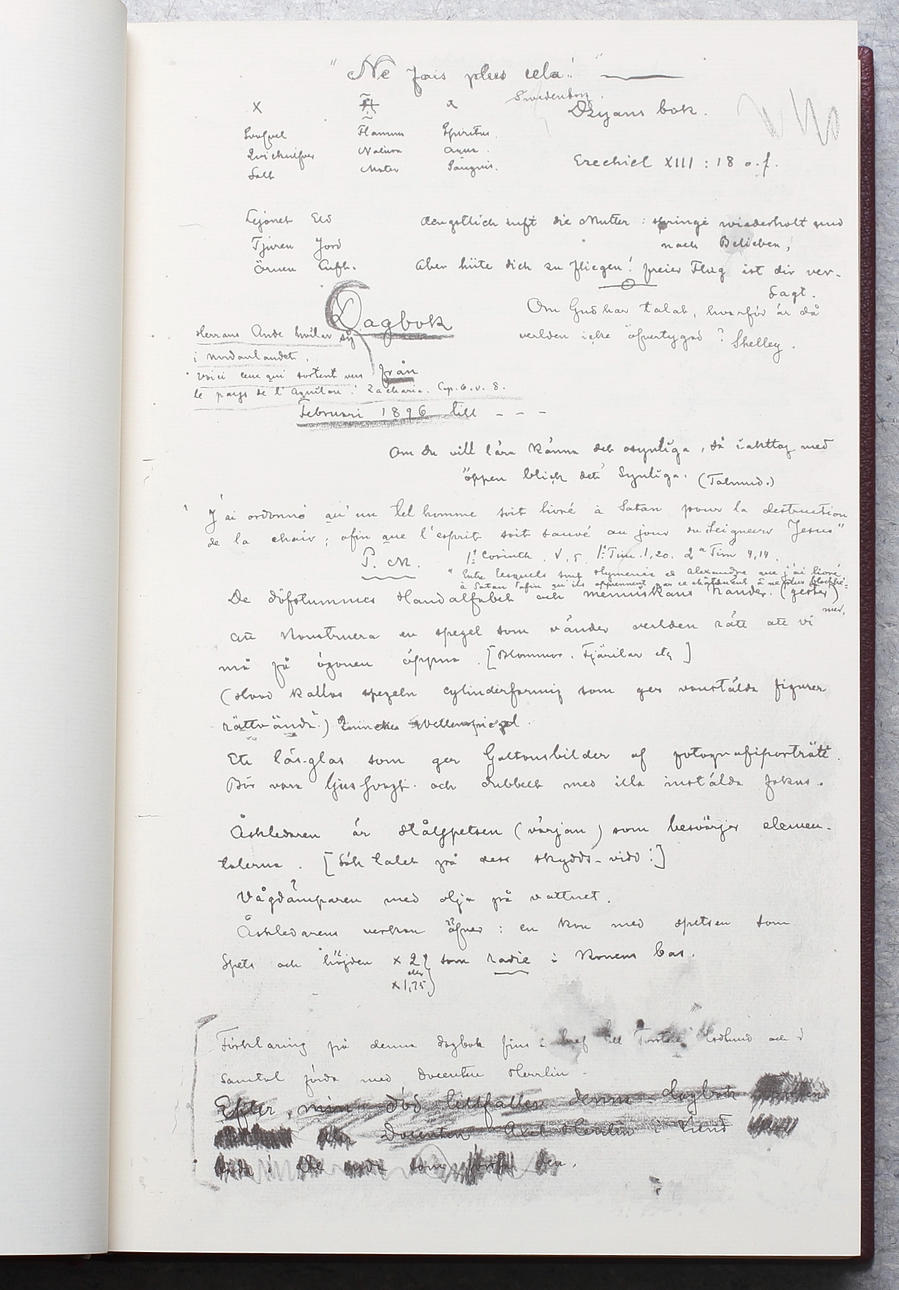 "Ne fais plus cela!"
Swedenborg.
Dzyans bok.
Flamma Spiritus
Natura Aqua
Salt Mater Sanguis.
Ezechiel XIII : 18 o.f.
Lejonet Eld
Tjuren Jord
Örnen Luft.
Aengstlich ruft die Mutter : springe wiederholt und
nach Belieben,
Aber hüte dich zu fliegen! freier Flug ist dir ver-
sagt.
Om Gud har talat, hvarför är då
verlden icke öfvertygad? Shelley.
Dagbok
Herrans Ande hvilar sig
i nordanlandet.
Voici ceux qui sortent vers
le pays de l'Aquilon: Zacharia. Cap. 6. v. 8.
från
Februari 1896 till - - -
Om du vill lära känna det osynliga, så iakttag med
öppen blick det Synliga. (Talmud.)
"J'ai ordonné qu'un tel homme soit livré à Satan pour la destruction
de la chair; afin que l'esprit soit sauvé au jour du Seigneur Jesus"
P. M. 1º Corinth. V, 5 1º Tim. 1, 20. 2ª Tim 4, 14.
"Entre lesquels sont Hymenée et Alexandre que j'ai livré
à Satan afin qu'ils apprennent par ce châtiment à ne plus
De döfstummes Handalfabet och menniskans händer. (gester)
Att konstruera en spegel som vänder verlden rätt att vi
må få ögonen öppna. [Blommor. Fjärilar etc]
(Hvad kallas spegeln cylinderformig som ger vanstälda figurer
rättvända?)
Ett läs-glas som ger Galtonsbilder af fotografiporträtt.
Bör vara ljussvagt och dubbelt med illa instäldt fokus.
Åskledaren är stålspetsen (värjan) som besvärjer elemen-
talerna. [Sök talet på dess skydds-vidd!]
Vågdämparen med olja på vattnet.
Åskledarens verkan öfver : en kon med spetsen som
Spets och höjden x 2 som radie i konens bas.
eller
x 1,75
Förklaring på denna dagbok fins i bref till Torsten Hedlund och i
samtal förda med docenten Herrlin.
Efter min död tillfaller denna dagbok
Docenten Axel Herrlin i Lund